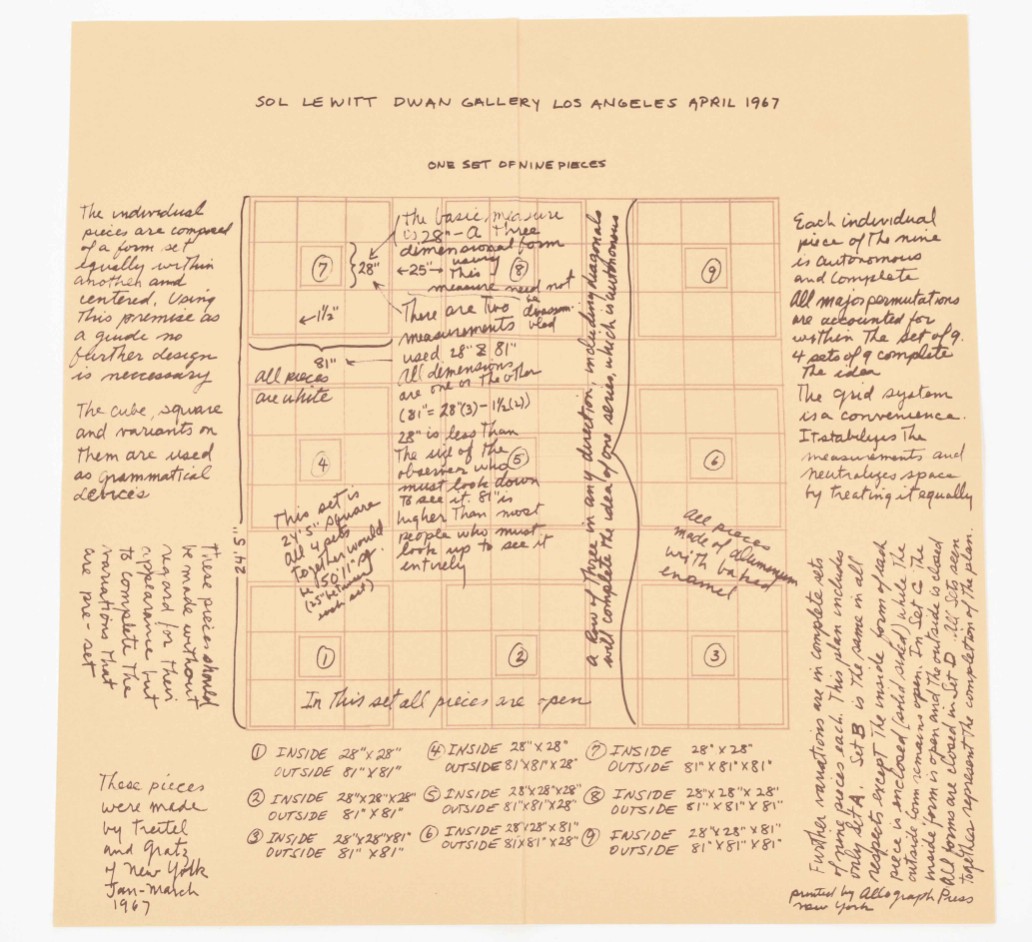 SOL LEWITT DWAN GALLERY LOS ANGELES APRIL 1967
ONE SET OF NINE PIECES
The individual
pieces are composed
of a form set
equally within
another and
centered. Using
This premise as
a guide no
further design
is neccessary
The cube, square
and variants on
them are used
as grammatical
devices
These pieces should
be made without
regard for their
appearance but
to complete the
variations that
are pre-set
These pieces
were made
by Treitel
and Gratz
of New York
Jan-March
1967
7
28"
1½"
81"
all pieces
are white
the basic measure
is 28" - a three
dimensional form
using
25"
this
8
measure need not
be
disassem-
bled
There are Two
measurements
used 28" & 81"
all dimensions
are one or the other
(81" = 28"(3) - 1½(2))
28" is less than
the size of the
observer who
must look down
to see it. 81" is
higher than most
people who must
look up to see it
entirely
5
4
This set is
24'5" square
all 4 sets
together would
be 50'11" sq.
(25" between
each set)
24'5"
a row of three in any direction, including diagonals
will complete the idea of one series, which is autonomous
9
6
all pieces
made of aluminum
with baked
enamel
1
2
3
In this set all pieces are open
Each individual
piece of the nine
is autonomous
and complete
all major permutations
are accounted for
within the set of 9.
4 sets of 9 complete
the idea
The grid system
is a convenience.
It stabilizes the
measurements and
neutralizes space
by treating it equally
Further variations are in complete sets
of nine pieces each. This plan includes
only set A. Set B is the same in all
respects except the inside form of each
piece is enclosed (solid sided) while the
outside form remains open. In Set C the
inside form is open and the outside is closed
all forms are closed in Set D. All sets seen
together represent the completion of the plan.
1 INSIDE 28"X28"
OUTSIDE 81"X81"
2 INSIDE 28"X28"X28"
OUTSIDE 81"X81"
3 INSIDE 28"X28"X81"
OUTSIDE 81"X81"
4 INSIDE 28"X28"
OUTSIDE 81"X81"X28"
5 INSIDE 28"X28"X28"
OUTSIDE 81"X81"X28"
6 INSIDE 28"X28"X81"
OUTSIDE 81"X81"X28"
7 INSIDE 28"X28"
OUTSIDE 81"X81"X81"
8 INSIDE 28"X28"X28"
OUTSIDE 81"X81"X81"
9 INSIDE 28"X28"X81"
OUTSIDE 81"X81"X81"
printed by Allograph Press
New York